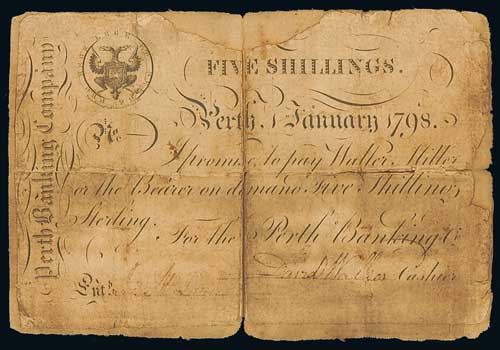 Perth Banking Company
FIVE SHILLINGS.
No. Perth, 1 January 1798.
I promise to pay Walter Miller
or the Bearer on demand Five Shillings
Sterling. For the Perth Banking Co.
Cashier
Entd.